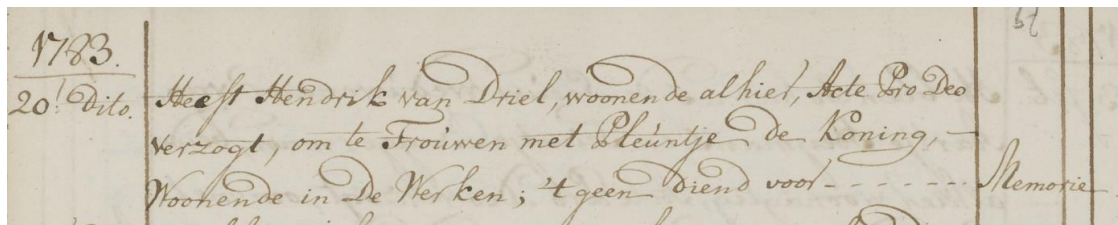 1783.
20.' dito. Heeft Hendrik van Driel, woonende alhier, Acte Pro Deo
verzogt, om te Trouwen met Pleuntje de Koning, –
Woonende in De Werken; 't geen diend voor - - - - - - - - Memorie